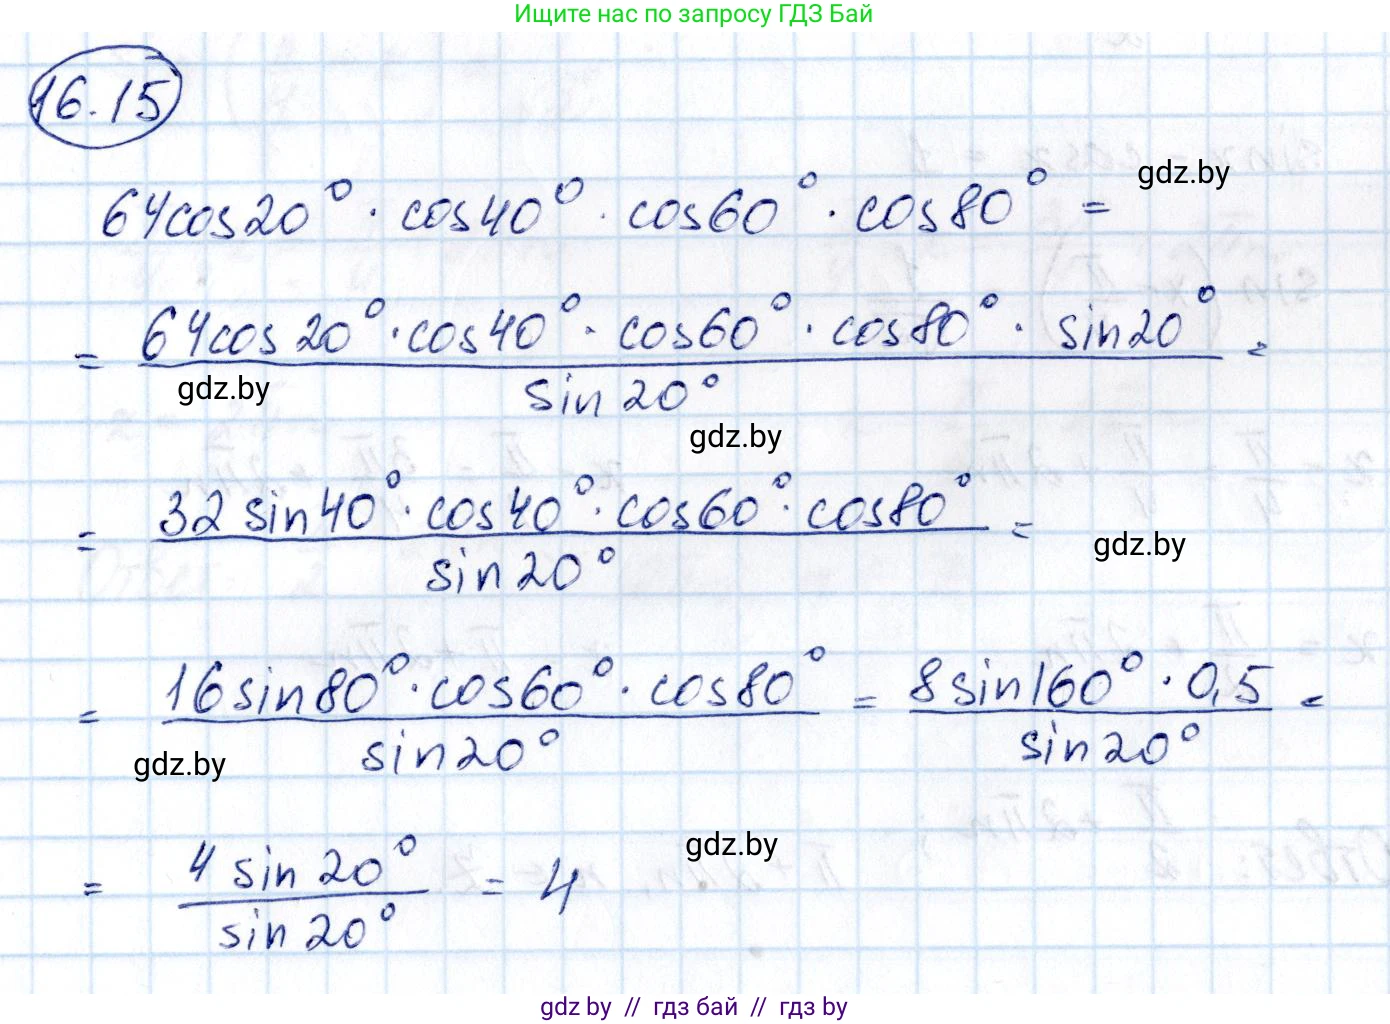 Ищите нас по запросу ГДЗ Бай
16.15
gdz.by
64cos20° · cos40° · cos60° · cos80° =
= 64cos20° · cos40° · cos60° · cos80° · sin20° / sin20° =
gdz.by
gdz.by
= 32 sin40° · cos40° · cos60° · cos80° / sin20° =
gdz.by
= 16sin80° · cos60° · cos80° / sin20° = 8sin160° · 0,5 / sin20° =
gdz.by
gdz.by
= 4 sin20° / sin20° = 4
gdz by // гдз бай // гдз by